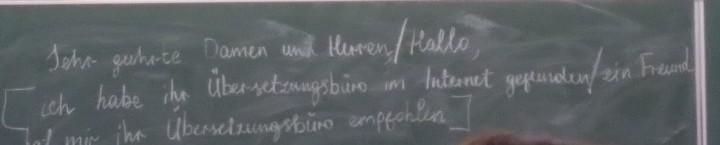 Sehr geehrte Damen und Herren,/Hallo,
[ich habe ihr Übersetzungsbüro im Internet gefunden/ein Freund
hat mir ihr Übersetzungsbüro empfohlen]